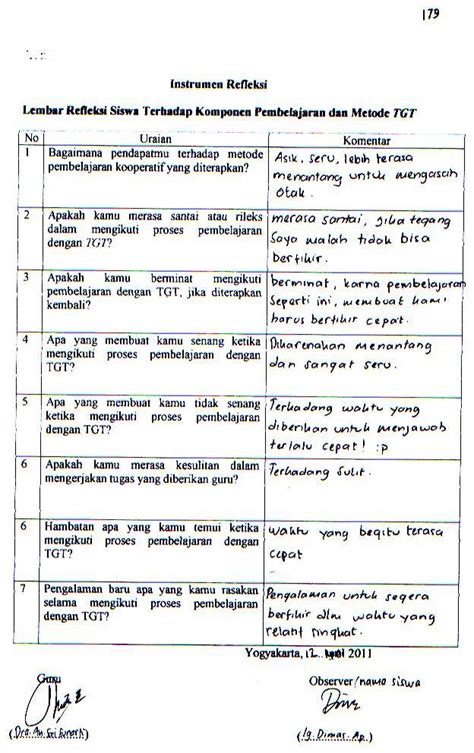 179
Instrumen Refleksi
Lembar Refleksi Siswa Terhadap Komponen Pembelajaran dan Metode TGT
No Uraian Komentar
1 Bagaimana pendapatmu terhadap metode pembelajaran kooperatif yang diterapkan?
Asik, seru, lebih terasa
menantang untuk mengasah
otak.
2 Apakah kamu merasa santai atau rileks
dalam mengikuti proses pembelajaran
dengan TGT?
merasa santai, jika tegang
saya malah tidak bisa
berfikir.
3 Apakah kamu berminat mengikuti
pembelajaran dengan TGT, jika diterapkan
kembali?
berminat, karna pembelajaran
seperti ini, membuat kami
harus berfikir cepat.
4 Apa yang membuat kamu senang ketika
mengikuti proses pembelajaran dengan
TGT?
Dikarenakan menantang
dan sangat seru.
5 Apa yang membuat kamu tidak senang
ketika mengikuti proses pembelajaran
dengan TGT?
Terkadang waktu yang
diberikan untuk menjawab
terlalu cepat! :p
6 Apakah kamu merasa kesulitan dalam
mengerjakan tugas yang diberikan guru?
Terkadang sulit.
6 Hambatan apa yang kamu temui ketika
mengikuti proses pembelajaran dengan
TGT?
waktu yang begitu terasa
cepat
7 Pengalaman baru apa yang kamu rasakan
selama mengikuti proses pembelajaran
dengan TGT?
Pengalaman untuk segera
berfikir dlm waktu yang
relatif singkat.
Yogyakarta, 12 2011
Guru Observer/nama siswa
(Dra. An. Sri ) (Ig. Dimas. Ap.)